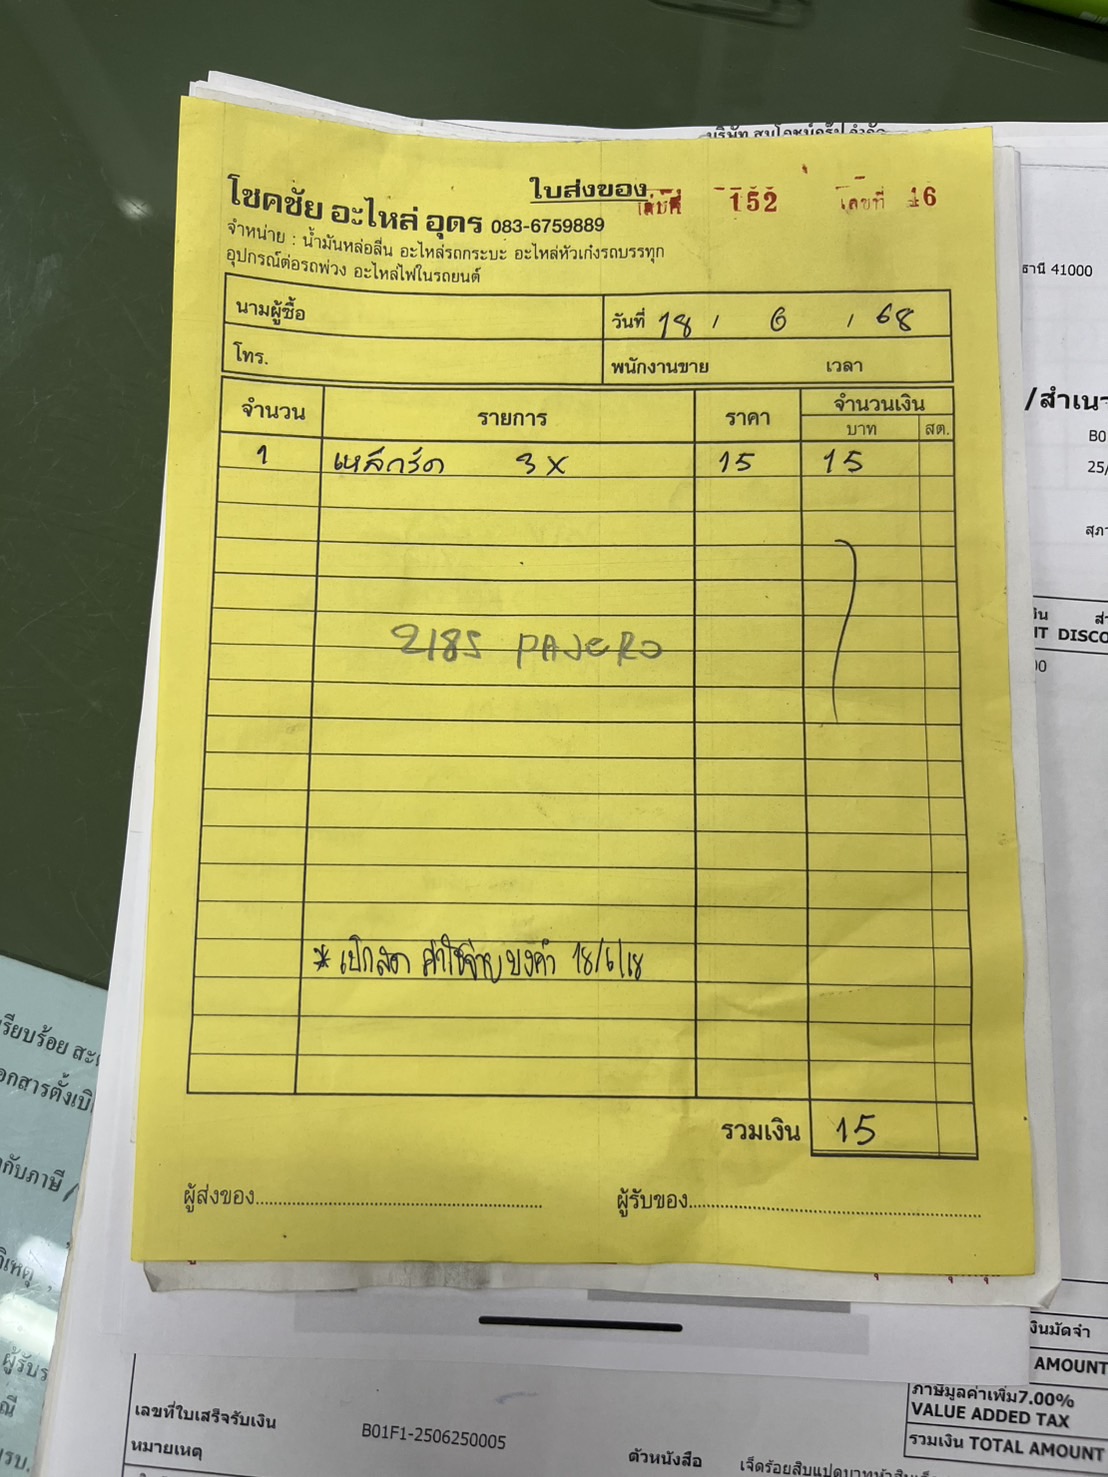 บริษัท สุขโฉมนักรัช จำกัด
ใบส่งของ
เล่มที่ 152 เลขที่ 46
โชคชัย อะไหล่ อุดร 083-6759889
จำหน่าย : น้ำมันหล่อลื่น อะไหล่รถกระบะ อะไหล่หัวเก๋งรถบรรทุก
อุปกรณ์ต่อรถพ่วง อะไหล่ไฟในรถยนต์
นามผู้ซื้อ
วันที่ 18 / 6 / 68
โทร.
พนักงานขาย เวลา
จำนวน รายการ ราคา จำนวนเงิน
บาท สต.
1 เหล็กรัด 3X 15 15
2185 PAJERO
* เบิกสด ค่าใช้จ่าย 18/6/68
รวมเงิน 15
ผู้ส่งของ
ผู้รับของ
ธานี 41000
/สำเนา
B0
25/
สุภา
DISCO
00
รียบร้อย
อกสารตั้งเบิ
กับภาษี
ผู้รับ
งินมัดจำ
AMOUNT
ภาษีมูลค่าเพิ่ม7.00%
VALUE ADDED TAX
รวมเงิน TOTAL AMOUNT
เลขที่ใบเสร็จรับเงิน B01F1-2506250005
หมายเหตุ
ตัวหนังสือ เจ็ดร้อยสิบแปดบาทห้าสิบ